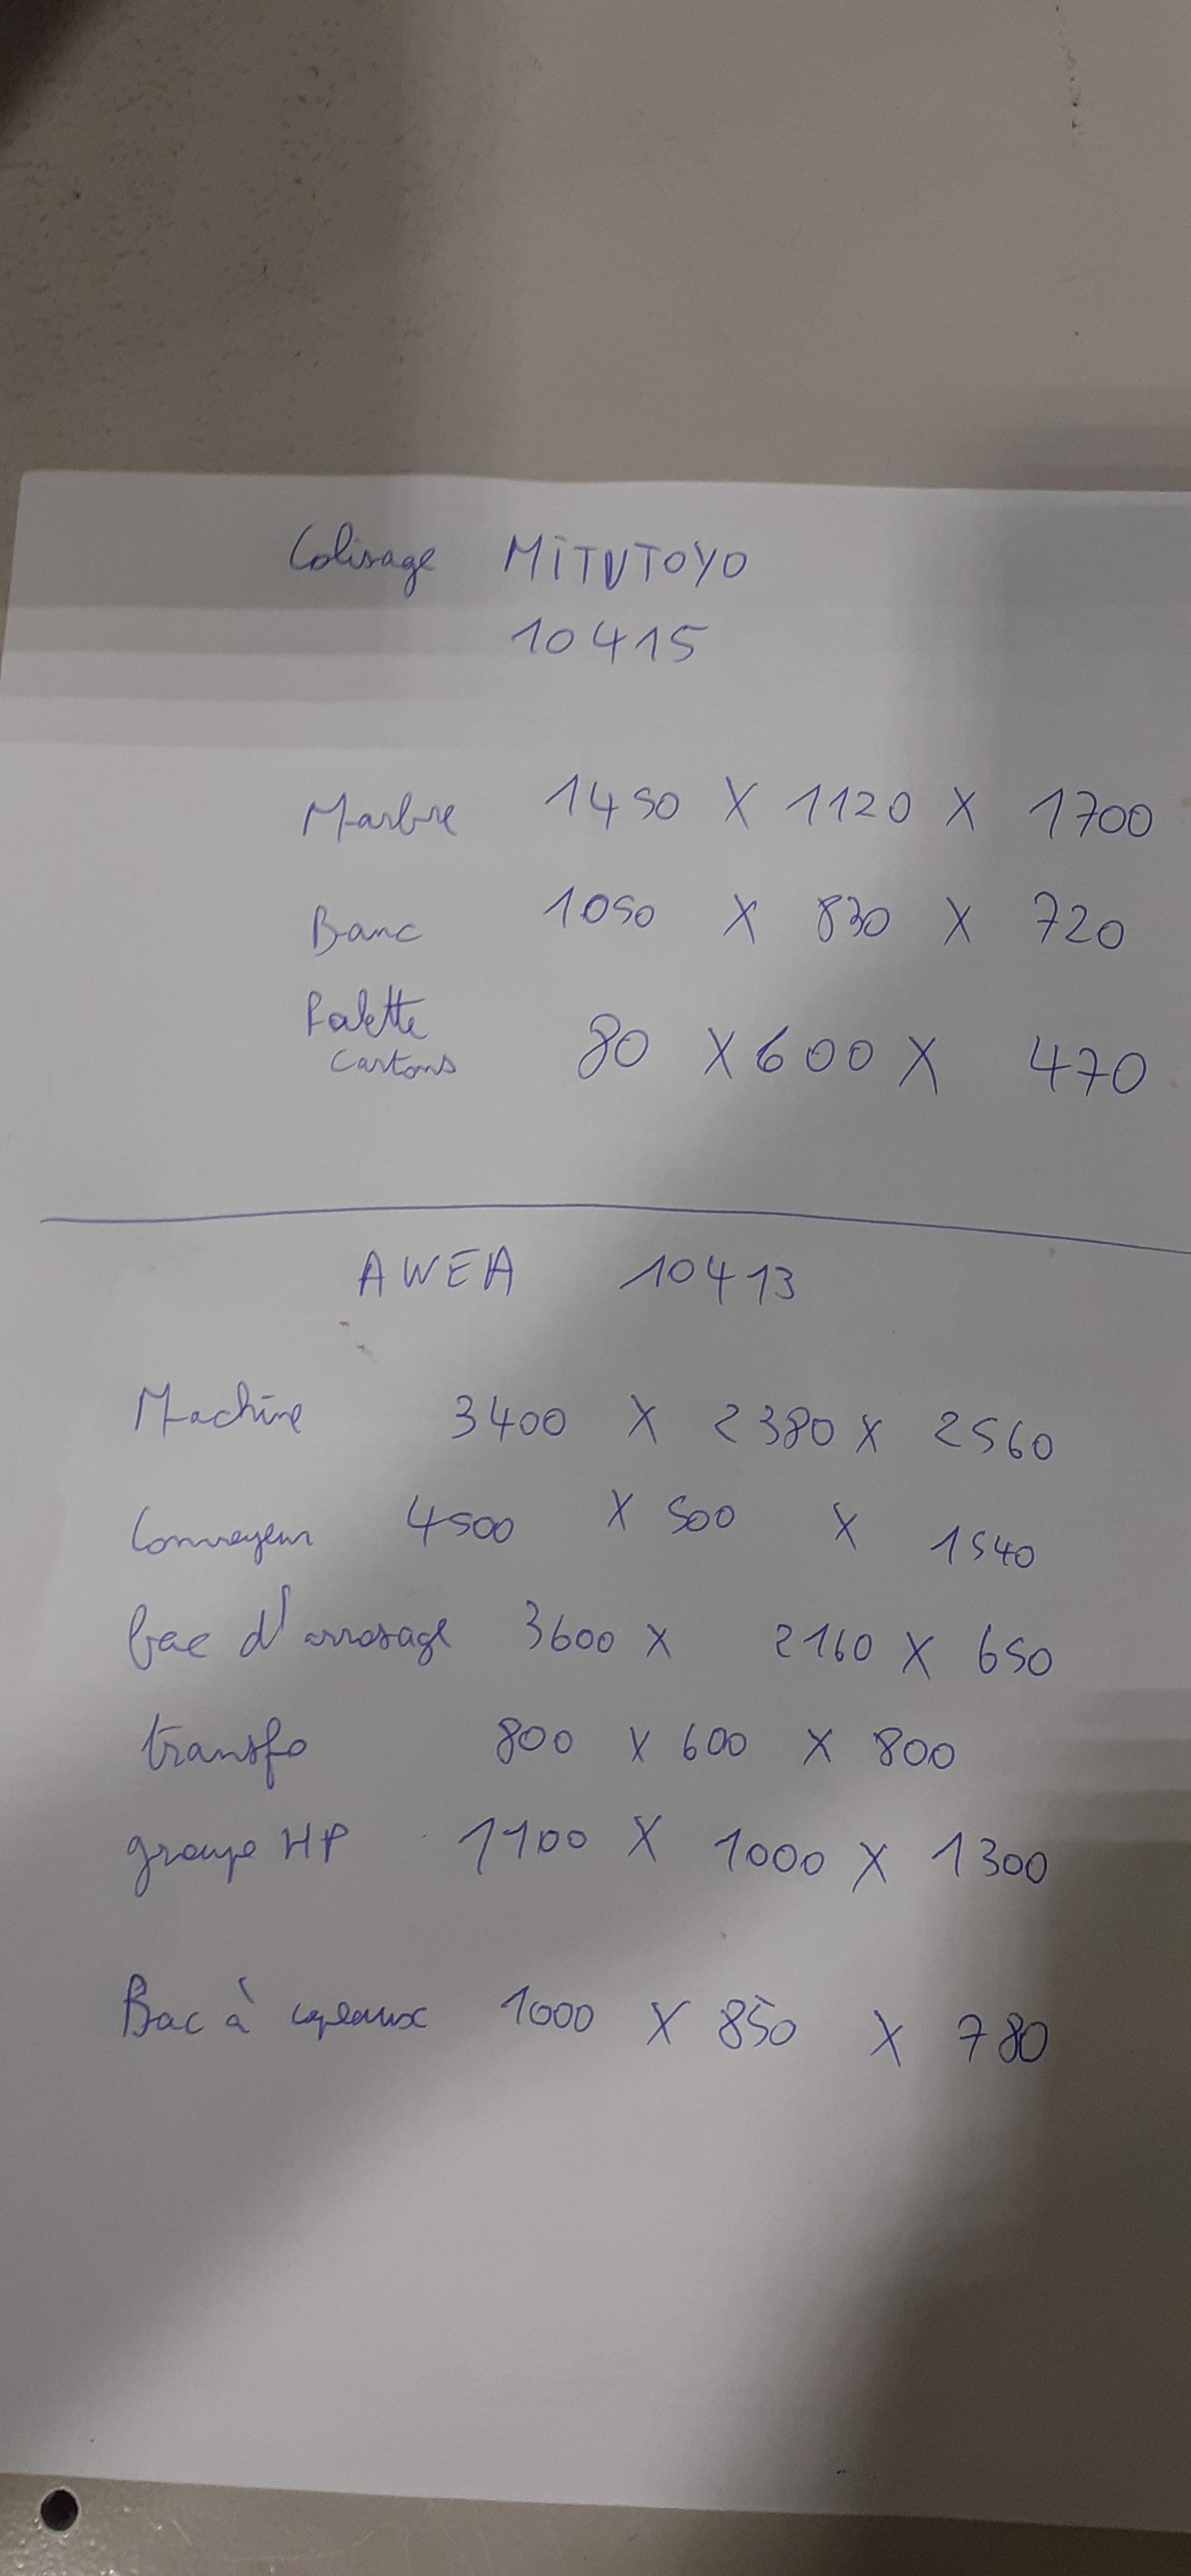 Colisage MITUTOYO
10415
Marbre 1450 X 1120 X 1700
Banc 1050 X 830 X 720
Palette
cartons 80 X 600 X 470
AWEA 10413
Machine 3400 X 2380 X 2560
Convoyeur 4500 X 500 X 1540
bac d'arrosage 3600 X 2160 X 650
transfo 800 X 600 X 800
groupe HP 1100 X 1000 X 1300
Bac à copeaux 1000 X 850 X 780